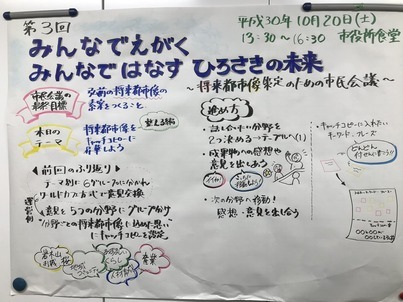 第3回
平成30年10月20日(土)
13:30~16:30 市役所食堂
みんなでえがく
みんなではなす ひろさきの未来
~将来都市像策定のための市民会議~
市民会議の
最終目標
本日の
テーマ
将来都市像を
キャッチコピーに
しよう
前回のふり返り
テーマ別に6グループに分かれ
ワールドカフェ方式で意見交換
意見を5つの分野にグループ分け
分野ごとの将来都市像に込めた思い
にキャッチコピーを設定
岩木山
お城 桜
進め方
・話し合いたい分野を
2つ決める→テーブルへ(1)
・成果物への感想や
意見を出しあう
・次の分野へ移動!
感想・意見を出し合う
・キャッチコピーに入れたい
キーワード、フレーズ
どんどん
付せんに書こう!!